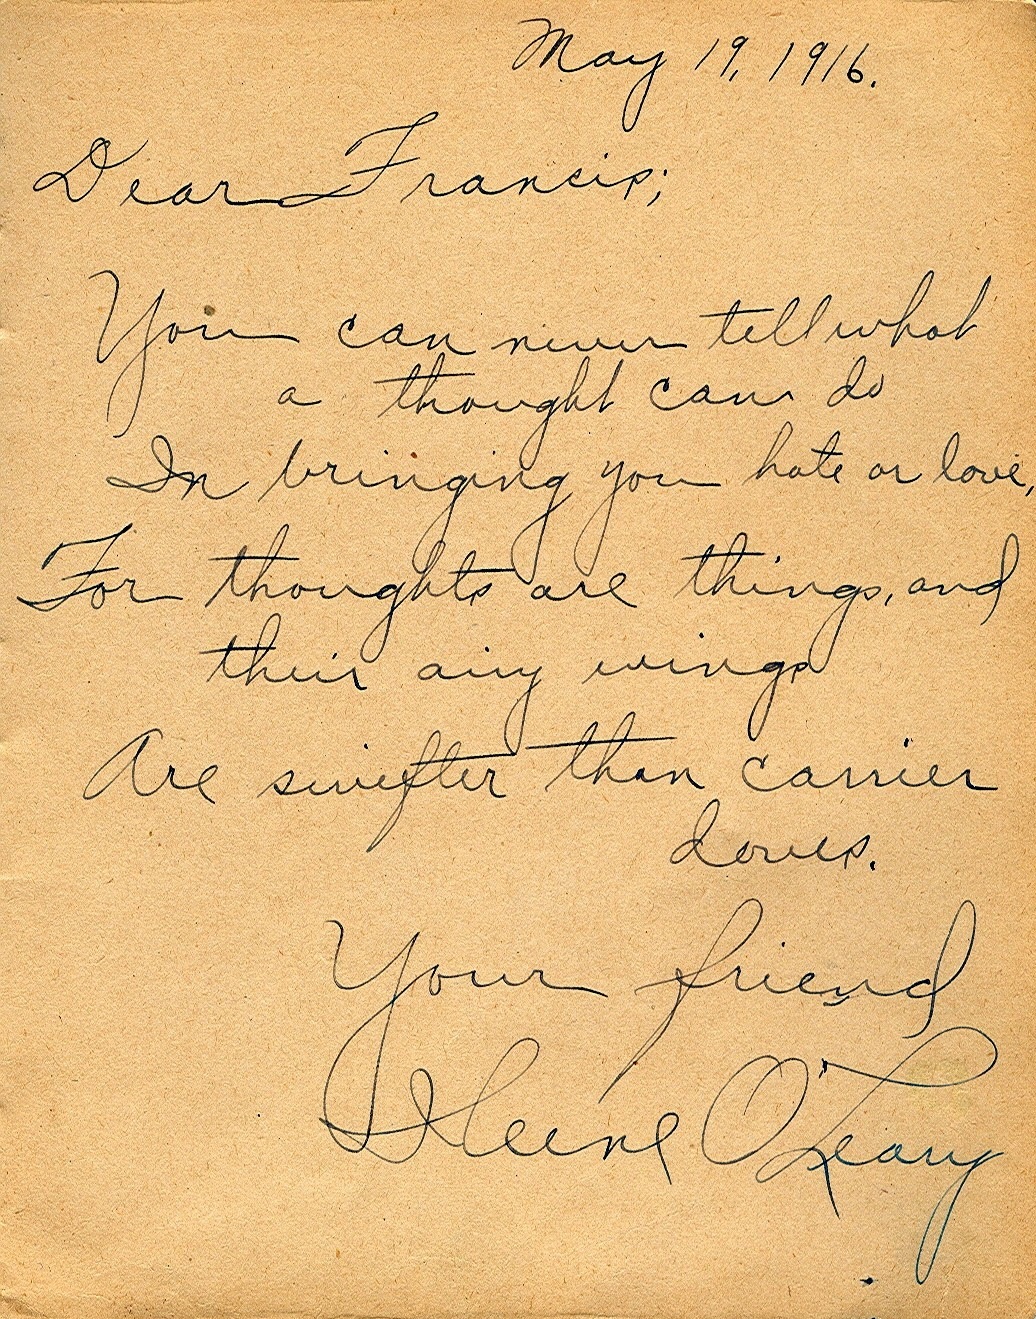 May 19, 1916.
Dear Francis;
You can never tell what
a thought can do
In bringing you hate or love,
For thoughts are things, and
their airy wings
Are swifter than carrier
doves.
Your friend
Ileene O'Leary